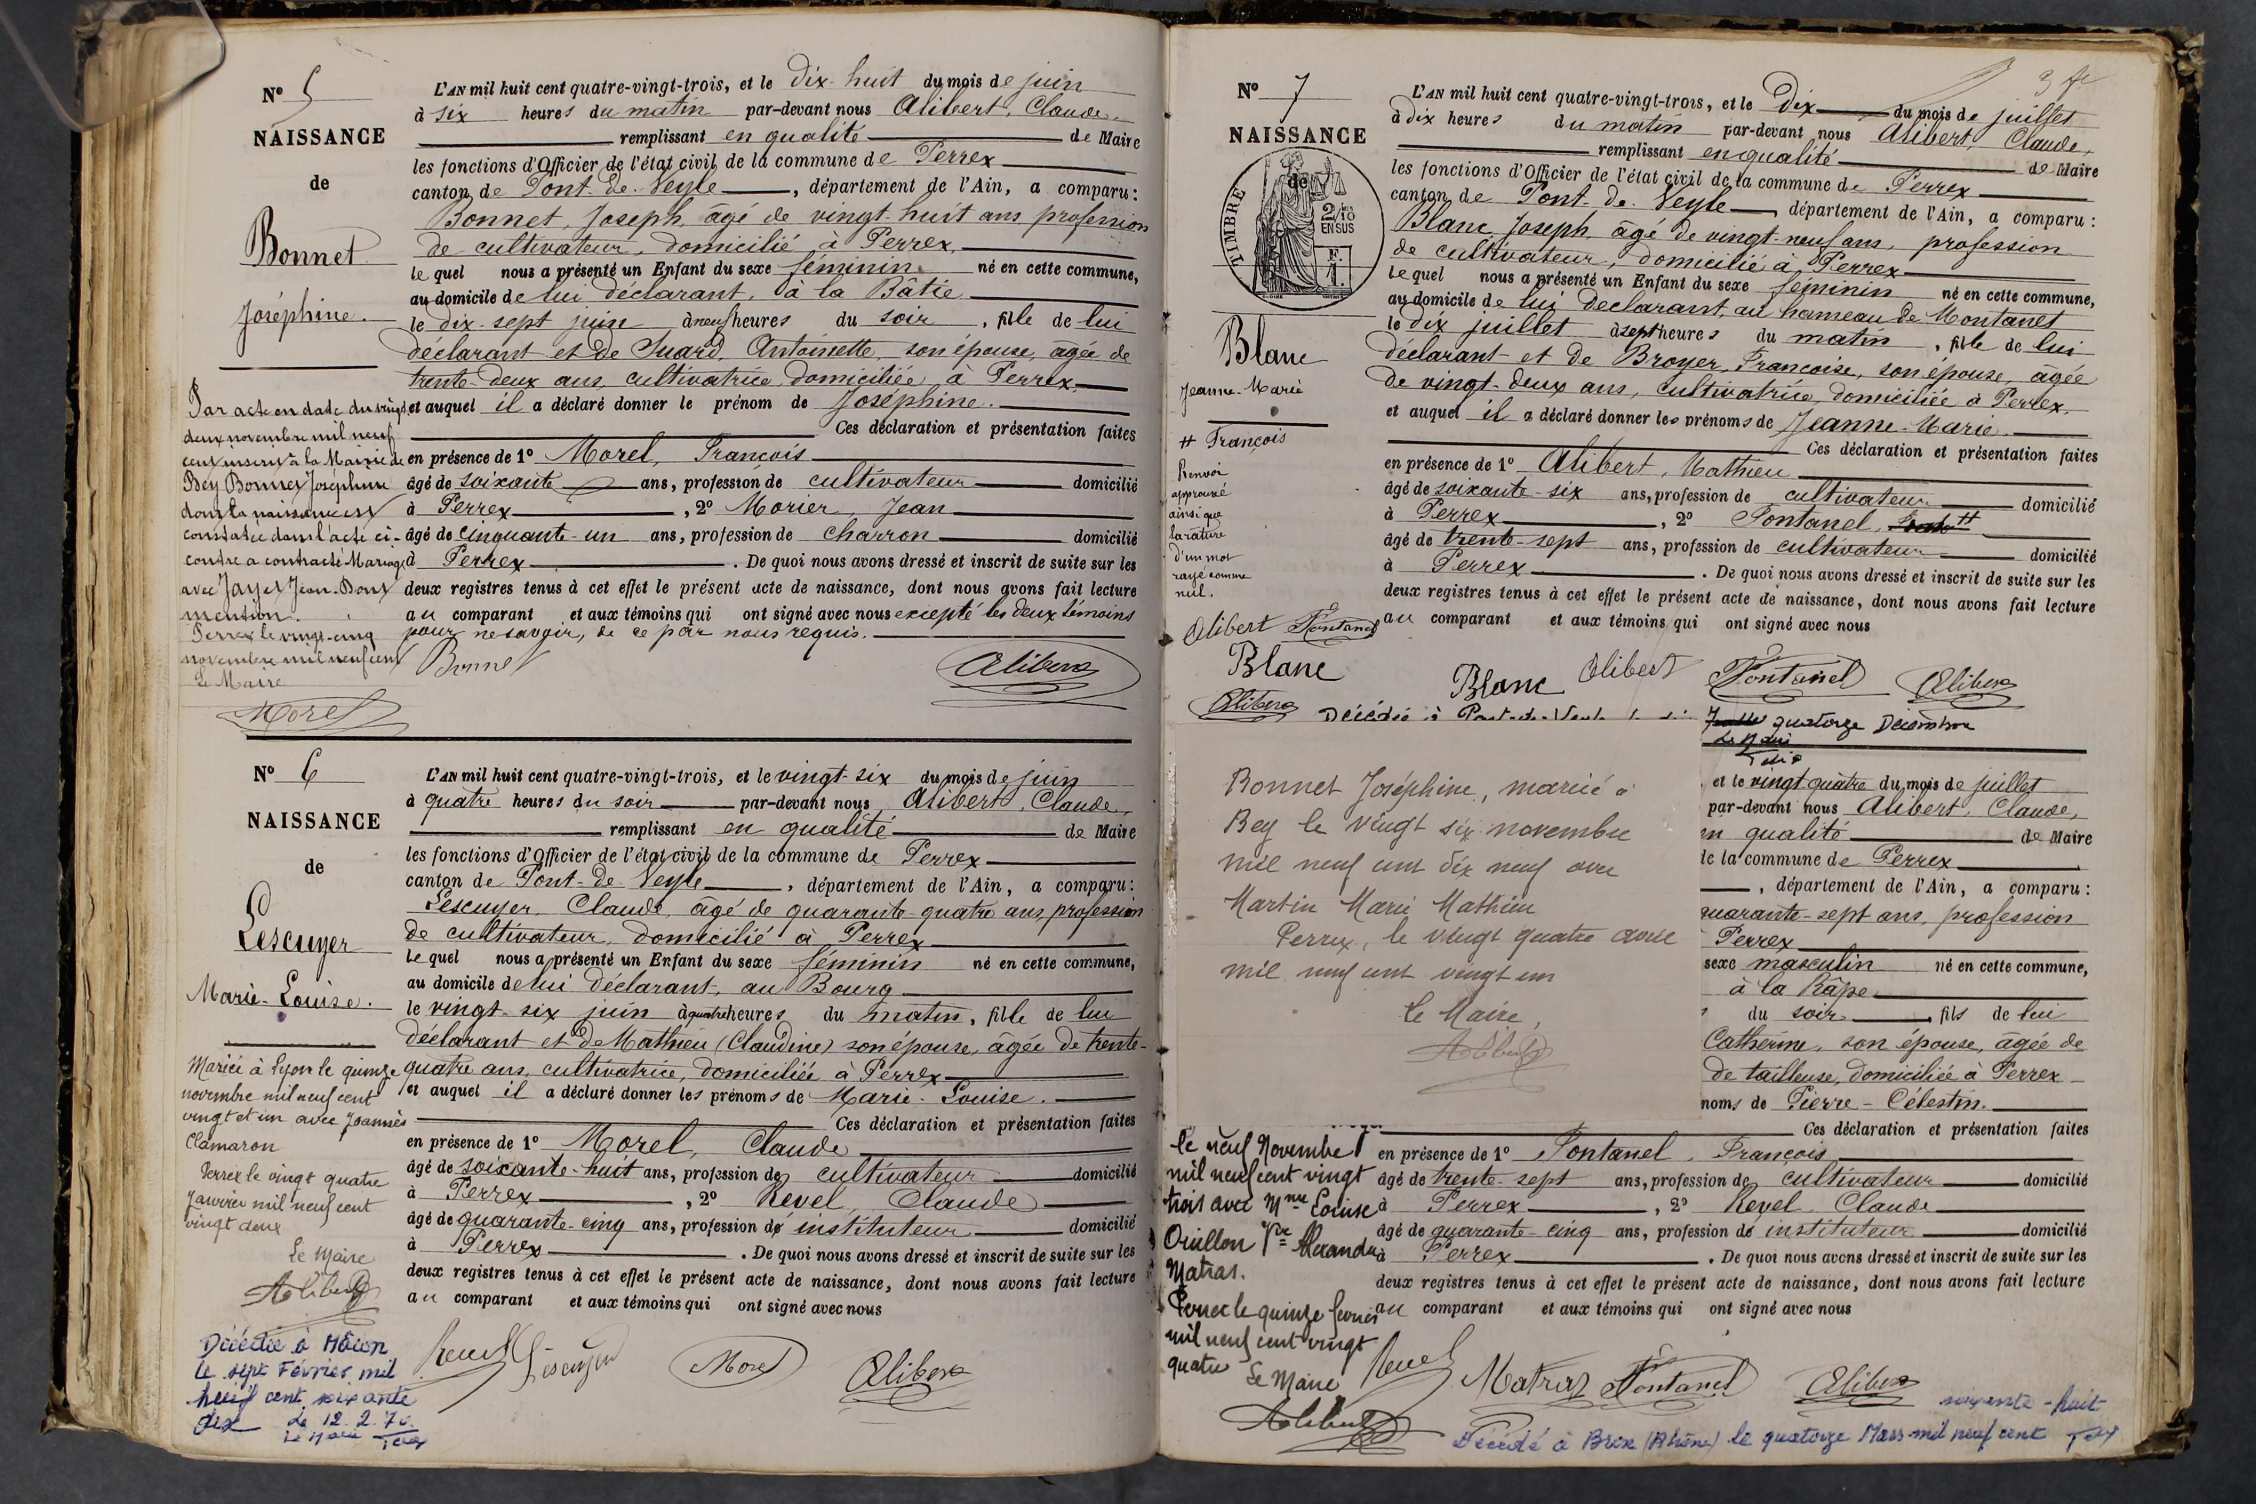 N° 5
NAISSANCE
de
Bonnet
Joséphine.
L'AN mil huit cent quatre-vingt-trois, et le dix-huit du mois de juin
à six heures du matin par-devant nous Alibert, Claude,
remplissant en qualité de Maire
les fonctions d'Officier de l'état civil de la commune de Perrex
canton de Pont-de-Veyle, département de l'Ain, a comparu:
Bonnet, Joseph, âgé de vingt-huit ans, profession
de cultivateur, domicilié à Perrex,
lequel nous a présenté un Enfant du sexe féminin né en cette commune,
au domicile de lui déclarant, à la Bâtie
le dix-sept juin à neuf heures du soir, fille de lui
déclarant et de Suard, Antoinette, son épouse, âgée de
trente-deux ans, cultivatrice, domiciliée à Perrex
et auquel il a déclaré donner le prénom de Joséphine.
Ces déclaration et présentation faites
en présence de 1° Morel, François
âgé de soixante ans, profession de cultivateur domicilié
à Perrex, 2° Morier, Jean
âgé de cinquante-un ans, profession de charron domicilié
à Perrex. De quoi nous avons dressé et inscrit de suite sur les
deux registres tenus à cet effet le présent acte de naissance, dont nous avons fait lecture
au comparant et aux témoins qui ont signé avec nous excepté les deux témoins
pour ne savoir, de ce par nous requis.
Bonnet Alibert
Par acte en date du vingt
deux novembre mil neuf
cent inscrit à la Mairie de
Bey Bonnet Joséphine
dont la naissance est
constatée dans l'acte ci-
contre a contracté Mariage
avec Jayet Jean. Dont
mention.
Perrex le vingt-cinq
novembre mil neuf cent
Le Maire
Morel
N° 6
NAISSANCE
de
Lescuyer
Marie-Louise.
L'AN mil huit cent quatre-vingt-trois, et le vingt-six du mois de juin
à quatre heures du soir par-devant nous Alibert, Claude,
remplissant en qualité de Maire
les fonctions d'Officier de l'état civil de la commune de Perrex
canton de Pont-de-Veyle, département de l'Ain, a comparu:
Lescuyer, Claude, âgé de quarante-quatre ans, profession
de cultivateur, domicilié à Perrex
lequel nous a présenté un Enfant du sexe féminin né en cette commune,
au domicile de lui déclarant, au Bourg
le vingt-six juin à quatre heures du matin, fille de lui
déclarant et de Mathieu (Claudine) son épouse, âgée de trente-
quatre ans, cultivatrice, domiciliée à Perrex
et auquel il a déclaré donner les prénoms de Marie-Louise.
Ces déclaration et présentation faites
en présence de 1° Morel, Claude
âgé de soixante-huit ans, profession de cultivateur domicilié
à Perrex, 2° Revel, Claude
âgé de quarante-cinq ans, profession de instituteur domicilié
à Perrex. De quoi nous avons dressé et inscrit de suite sur les
deux registres tenus à cet effet le présent acte de naissance, dont nous avons fait lecture
au comparant et aux témoins qui ont signé avec nous
Revel Lescuyer Morel Alibert
Mariée à Lyon le quinze
novembre mil neuf cent
vingt et un avec Joannès
Clamaron
Perrex le vingt quatre
Janvier mil neuf cent
vingt deux
Le Maire
Alibert
Décédée à Mâcon
le sept Février mil
neuf cent soixante
dix Le 12.2.70.
Le Maire
N° 7
NAISSANCE
de
TIMBRE
2/10 EN SUS
F. 1.
Blanc
Jeanne-Marie
L'AN mil huit cent quatre-vingt-trois, et le Dix du mois de juillet
à dix heures du matin par-devant nous Alibert, Claude,
remplissant en qualité de Maire
les fonctions d'Officier de l'état civil de la commune de Perrex
canton de Pont-de-Veyle, département de l'Ain, a comparu:
Blanc, Joseph, âgé de vingt-neuf ans, profession
de cultivateur, domicilié à Perrex
lequel nous a présenté un Enfant du sexe féminin né en cette commune,
au domicile de lui déclarant, au hameau de Montanet
le dix juillet à sept heures du matin, fille de lui
déclarant et de Broyer, Françoise, son épouse, âgée
de vingt-deux ans, cultivatrice, domiciliée à Perrex,
et auquel il a déclaré donner les prénoms de Jeanne-Marie.
Ces déclaration et présentation faites
en présence de 1° Alibert, Mathieu
âgé de soixante-six ans, profession de cultivateur domicilié
à Perrex, 2° Fontanel, #
âgé de trente-sept ans, profession de cultivateur domicilié
à Perrex. De quoi nous avons dressé et inscrit de suite sur les
deux registres tenus à cet effet le présent acte de naissance, dont nous avons fait lecture
au comparant et aux témoins qui ont signé avec nous
# François
Renvoi
approuvé
ainsi que
la rature
d'un mot
rayé comme
nul.
Alibert Fontanel
Blanc Blanc Alibert Fontanel Alibert
Alibert Décédée à Pont-de-Veyle quatorze Décembre
Le Maire
Bonnet Joséphine, mariée à
Bey le vingt six novembre
mil neuf cent dix neuf avec
Martin Marie Mathieu
Perrex, le vingt quatre avril
mil neuf cent vingt un
Le Maire,
Alibert
et le vingt quatre du mois de juillet
par-devant nous Alibert, Claude,
n qualité de Maire
le la commune de Perrex
, département de l'Ain, a comparu:
quarante-sept ans, profession
Perrex
sexe masculin né en cette commune,
à la Râpe
du soir, fils de lui
Catherine, son épouse, âgée de
de tailleuse, domiciliée à Perrex
noms de Pierre-Célestin.
Ces déclaration et présentation faites
en présence de 1° Fontanel, François
âgé de trente-sept ans, profession de cultivateur domicilié
à Perrex, 2° Revel, Claude
âgé de quarante-cinq ans, profession de instituteur domicilié
à Perrex. De quoi nous avons dressé et inscrit de suite sur les
deux registres tenus à cet effet le présent acte de naissance, dont nous avons fait lecture
au comparant et aux témoins qui ont signé avec nous
le neuf Novembre
mil neuf cent vingt
trois avec Mme Louise
Ouillon Vve Alexandre
Matras.
Perrex le quinze février
mil neuf cent vingt
quatre
Le Maire
Alibert
Revel Matras Fontanel Alibert
soixante-huit
Décédé à Bron (Rhône) le quatorze Mars mil neuf cent